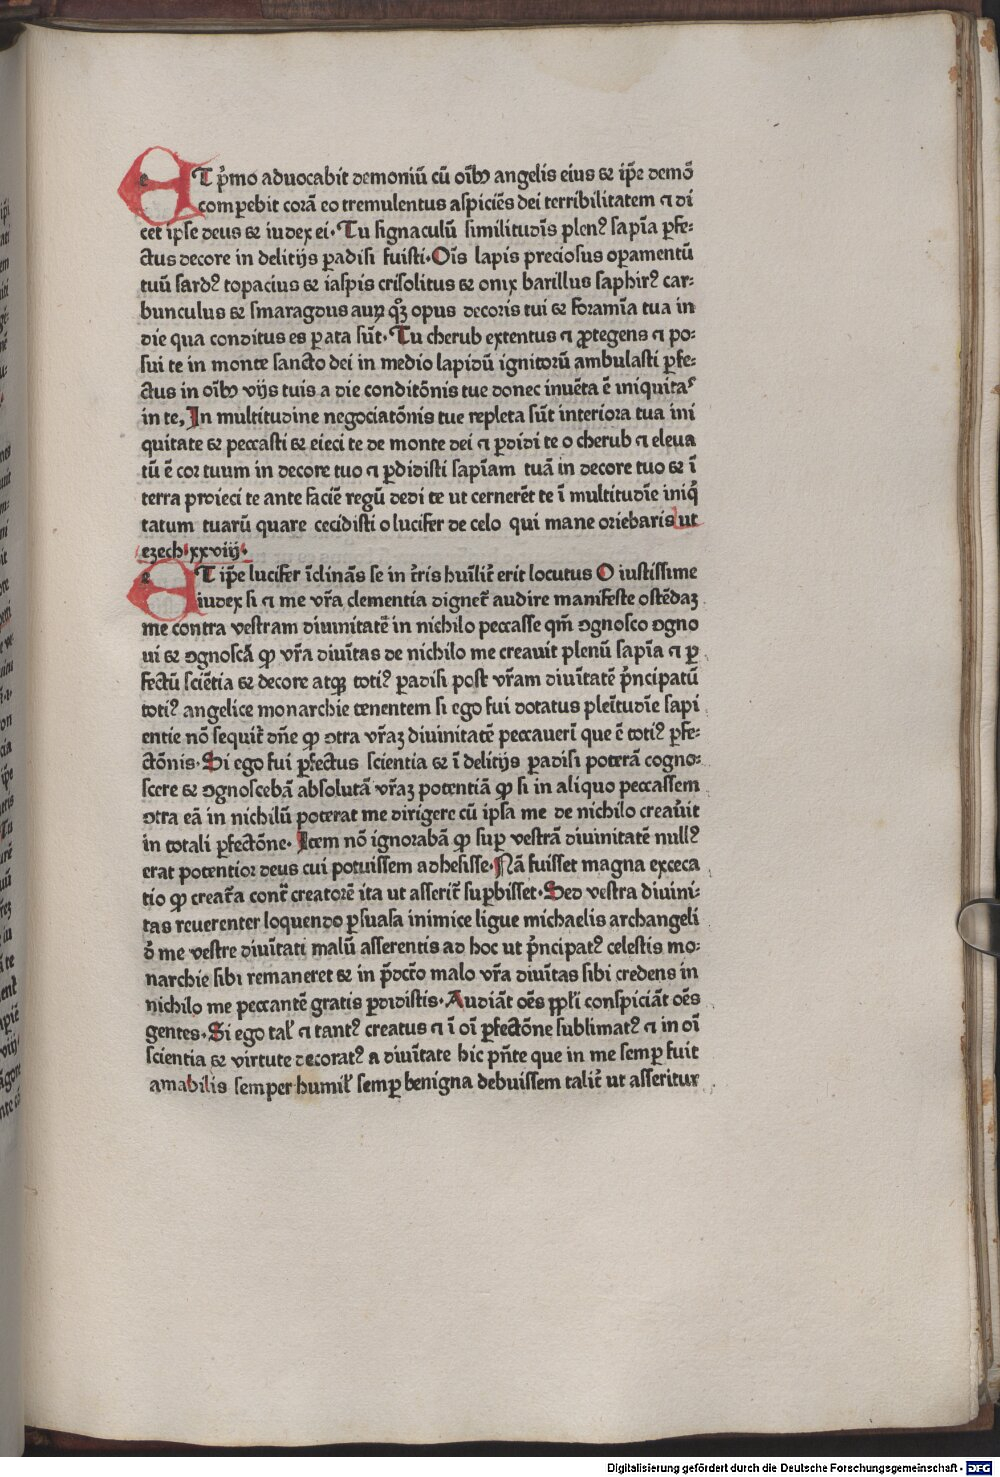 ET p̄mo aduocabit demoniū cū oı̄bꝰ angelis eius et ip̄e demō
comꝑebit corā eo tremulentus aspiciēs dei terribilitatem ⁊ di
cet ipse deus et iudex ei. Tu signaculū similitudīs plenꝰ sapīa ꝑfe⸗
ctus decore in delitijs ꝑadisi fuisti. Oīs lapis preciosus oꝑamentū
tuū sardꝰ topacius et iaspis crisolitus et onix barillus saphirꝰ car⸗
bunculus et smaragdus auꝝ qꝫ opus decoris tui et foramīa tua in
die qua conditus es ꝑata sūt. Tu cherub extentus ⁊ ꝓtegens ⁊ po⸗
sui te in monte sancto dei in medio lapidū ignitorū ambulasti ꝑfe⸗
ctus in oı̄bꝰ vijs tuis a die conditōnis tue donec inuēta ē iniquitaˢ
in te, In multitudine negociatōnis tue repleta sūt interiora tua ini
quitate et peccasti et eieci te de monte dei ⁊ ꝑdidi te o cherub ⁊ eleua
tū ē cor tuum in decore tuo ⁊ ꝑdidisti sapīam tuā in decore tuo et ī
terra proieci te ante faciē regū dedi te ut cernerēt te ī multitudīe iniq̄
tatum tuarū quare cecidisti o lucifer de celo qui mane oriebaris ut
ezech. xxviij.
ET ip̄e lucifer īclinās se in t̄ris huīlit̄ erit locutus O iustissime
iudex si ⁊ me vr̄a clementia dignet̄ audire manifeste ostēdaꝫ
me contra vestram diuinitatē in nichilo peccasse qm̄ ꝯgnosco ꝯgno
ui et ꝯgnoscā ꝙ vr̄a diuītas de nichilo me creauit plenū sapīa ⁊ ꝑ
fectū sciētia et decore atqꝫ totiꝰ ꝑadisi post vr̄am diuītatē p̄ncipatū
totiꝰ angelice monarchie tenentem si ego fui dotatus pleītudīe sapi
entie nō sequit̄ dn̄e ꝙ ꝯtra vr̄aꝫ diuinitatē peccauerī que ē totiꝰ ꝑfe⸗
ctōnis. Si ego fui ꝑfectus scientia et ī delitijs ꝑadisi poterā cogno⸗
scere et ꝯgnoscebā absolutā vr̄aꝫ potentiā ꝙ si in aliquo peccassem
ꝯtra eā in nichilū poterat me dirigere cū ipsa me de nichilo creau̅it
in totali ꝑfectōne. Item nō ignorabā ꝙ suꝑ vestrā diuinitatē nullꝰ
erat potentior deus cui potuissem adhesisse. Nā fuisset magna execca
tio ꝙ creat̄a cont̄ creatorē ita ut asserit̄ suꝑbisset. Sed vestra diuini⸗
tas reuerenter loquendo ꝑsuasa inimice ligue michaelis archangeli
ō me vestre diuītati malū asserentis ad hoc ut p̄ncipatꝰ celestis mo⸗
narchie sibi remaneret et in p̄dc̄to malo vr̄a diuītas sibi credens in
nichilo me peccantē gratis ꝑdidistis. Audiāt oēs pp̄li conspiciāt oēs
gentes. Si ego tal̄ ⁊ tantꝰ creatus ⁊ ī oī ꝑfectōne sublimatꝰ ⁊ in oī
scientia et virtute decoratꝰ a diuītate hic pn̄te que in me semꝑ fuit
amabilis semper humil̄ semꝑ benigna debuissem talit̄ ut asseritur
Digitalisierung gefördert durch die Deutsche Forschungsgemeinschaft - DFG